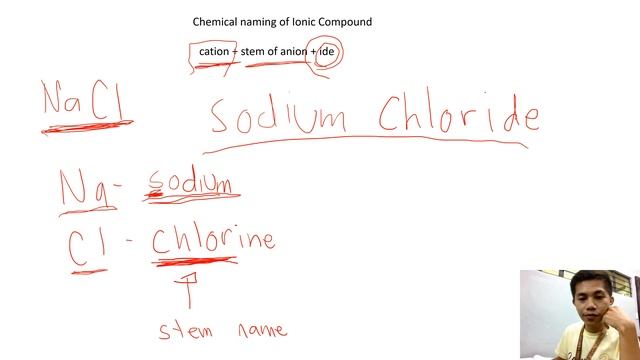 Chemical naming of Ionic Compound
cation + stem of anion + ide
NaCl
Sodium Chloride
Na - sodium
Cl - chlorine
stem name